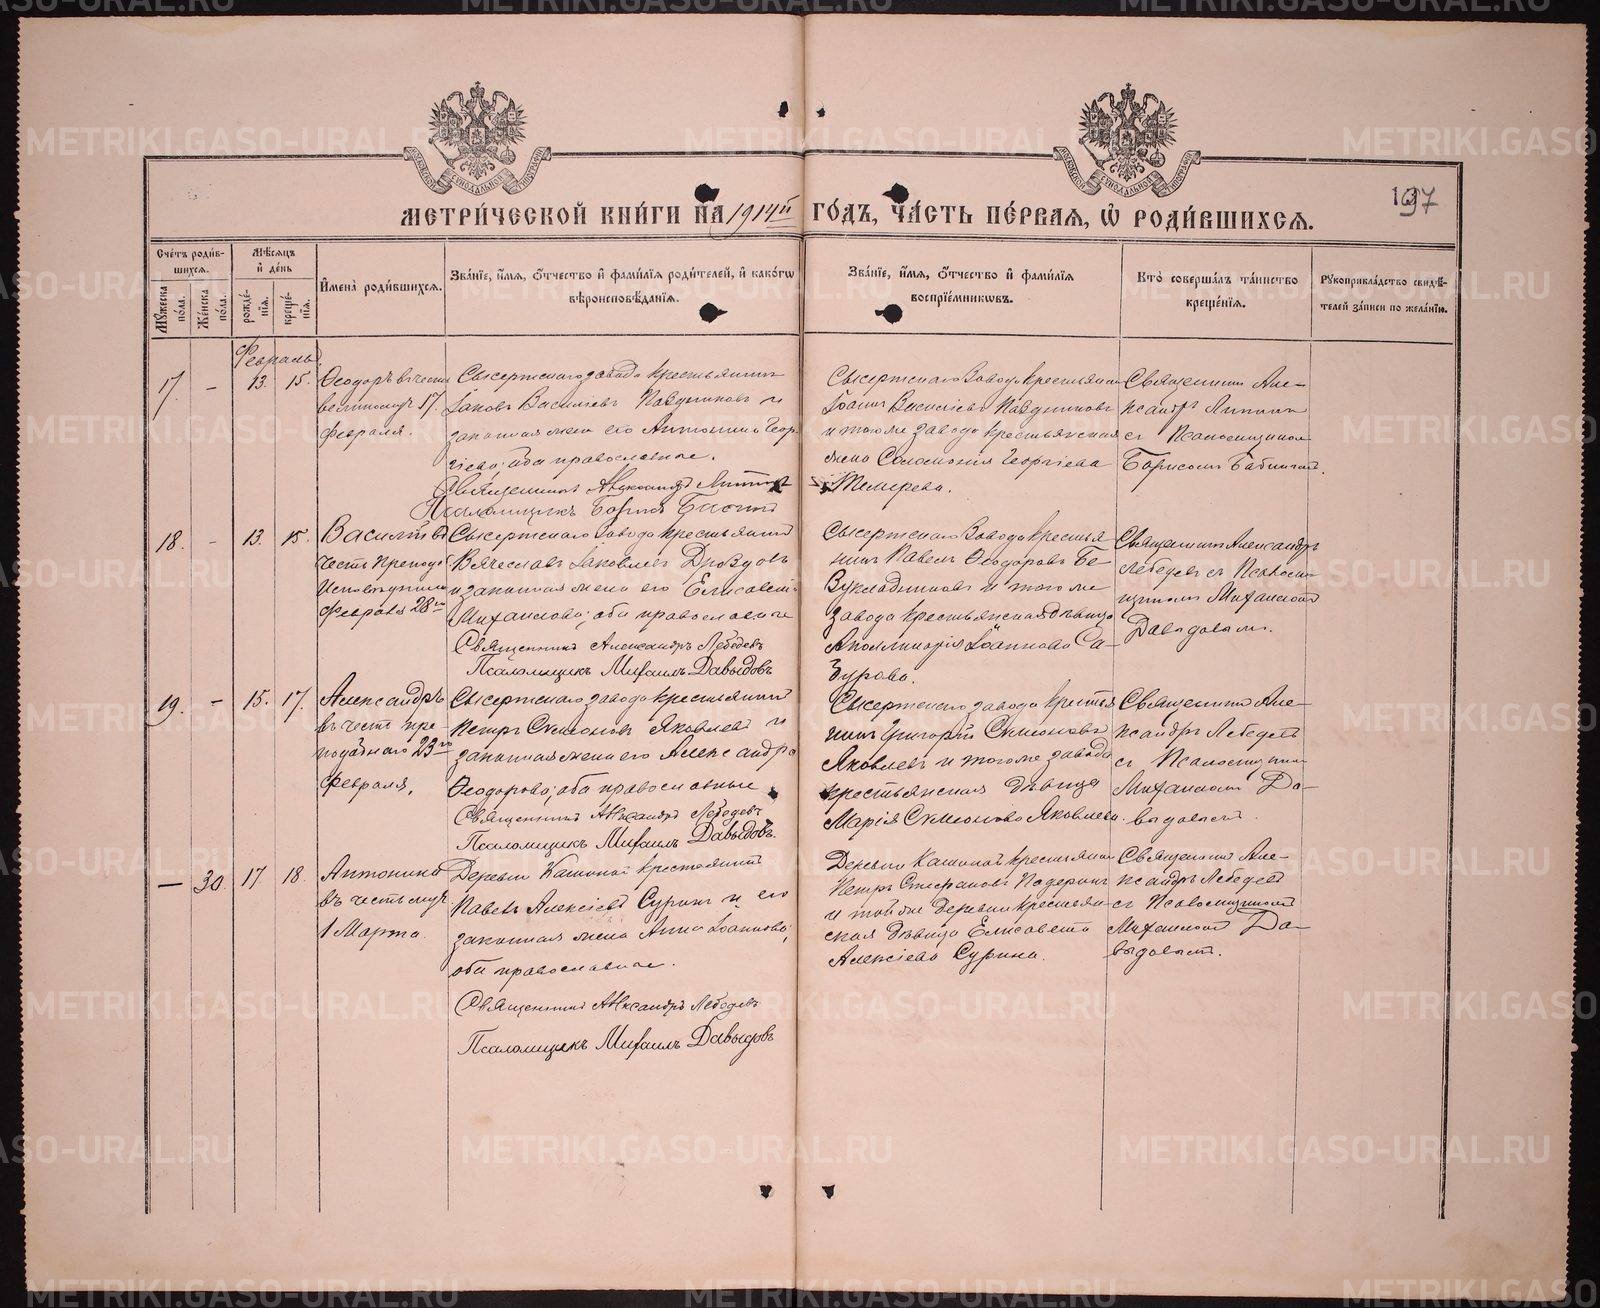 METRIKI.GASO-URAL.RU
МЕТРИ́ЧЕСКОЙ КНИ́ГИ НА 1914й ГО́ДЪ, ЧА́СТЬ ПЕ́РВАЯ, Ѡ҆ РОДИ́ВШИХСЯ.
197
Сче́тъ роди́вшихся.
Мꙋ́жеска по́ла.
Же́нска по́ла.
Мѣ́сяцъ и҆ де́нь
рожде́нїя.
креще́нїя.
И҆мена̀ роди́вшихся.
Зва́нїе, и҆́мя, ѻ҆́тчество и҆ фами́лїя роди́телей, и҆ како́гѡ вѣроисповѣ́данїя.
Зва́нїе, и҆́мя, ѻ҆́тчество и҆ фами́лїя воспрїе́мникѡвъ.
Кто̀ соверша́лъ та́инство креще́нїя.
Рꙋкоприкла́дство свидѣ́телей за́писи по жела́нїю.
Февраль
17. - 13. 15.
Ѳеодоръ въ честь
великомуч. 17.
февраля.
Сысертскаго завода крестьянинъ
Іаковъ Василіевъ Павдниковъ и
законная жена его Антонина Геор-
гіева; оба православные.
Священникъ Александръ
Псаломщикъ Борисъ
Сысертскаго Завода крестьянинъ
Іоаннъ Василіевъ Павдниковъ
и того же завода крестьянская
жена Соломонія Георгіева
Священникъ Але-
ксандръ
съ Псаломщикомъ
Борисомъ
18. - 13. 15.
Василій въ
честь препод.
Исповѣдника
Февраля 28го
Сысертскаго Завода крестьянинъ
Вячеславъ Іаковлевъ Дроздовъ
и законная жена его Елисавета
Михаилова; оба православные
Священникъ Александръ Лебедевъ
Псаломщикъ Михаилъ Давыдовъ
Сысертскаго Завода крестья-
нинъ Павелъ Ѳеодоровъ Бе-
зукладниковъ и того же
завода крестьянская дѣвица
Аполлинарія Іоаннова Са-
зурова.
Священникъ Александръ
Лебедевъ съ Псалом-
щикомъ Михаиломъ
Давыдовымъ.
19. - 15. 17.
Александръ
въ честь пре-
подобнаго 23го
Февраля.
Сысертскаго завода крестьянинъ
Петръ Симеоновъ Яковлевъ и
законная жена его Александра
Ѳеодорова; оба православные
Священникъ Александръ Лебедевъ
Псаломщикъ Михаилъ Давыдовъ
Сысертскаго завода крестья-
нинъ Григорій Симеоновъ
Яковлевъ и того же завода
крестьянская дѣвица
Марія Симеонова Яковлева.
Священникъ Але-
ксандръ Лебедевъ
съ Псаломщикомъ
Михаиломъ Да-
выдовымъ.
- 30. 17. 18.
Антонина
въ честь муч.
1 Марта.
Деревни Кашиной крестьянинъ
Павелъ Алексіевъ Суринъ и его
законная жена Анна Іоаннова;
оба православные.
Священникъ Александръ Лебедевъ
Псаломщикъ Михаилъ Давыдовъ
Деревни Кашиной крестьянинъ
Петръ Стефановъ
и той же деревни крестьян-
ская дѣвица Елисавета
Алексіева Сурина.
Священникъ Але-
ксандръ Лебедевъ
съ Псаломщикомъ
Михаиломъ Да-
выдовымъ.